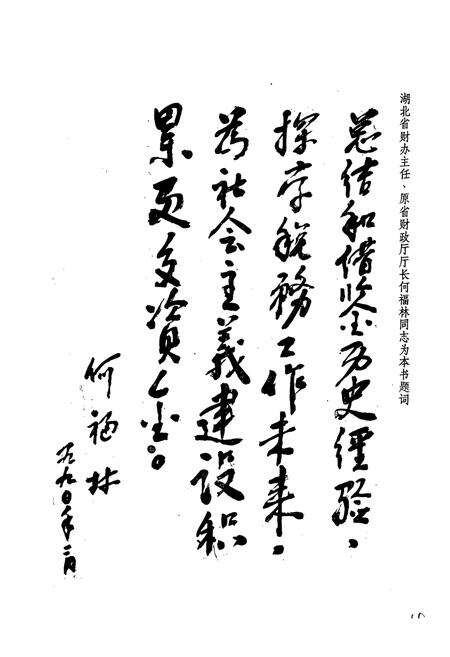 湖北省财办主任、原省财政厅厅长何福林同志为本书题词
总结和借鉴历史经验，
探索税務工作未来，
为社会主義建设积
累更多資金。
何福林
一九九〇年二月